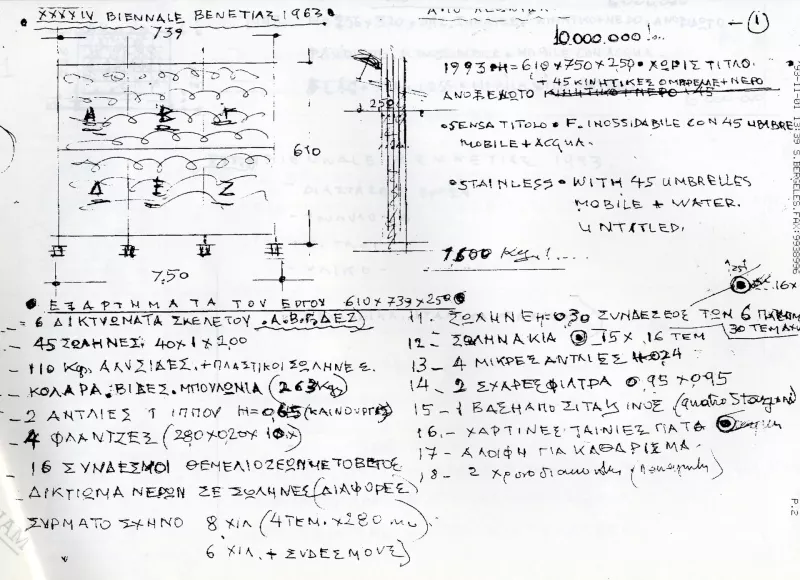 XXXXIV BIENNALE BENETIAS 1963
739
①
10.000.000!..
1993 H=610x750x250 • ΧΩΡΙΣ ΤΙΤΛΟ.
+ 45 ΚΙΝΗΤΙΚΕΣ ΟΜΒΡΕΛΕ + ΝΕΡΟ
ΑΝΟΞΕΙΔΩΤΟ ΚΙΝΗΤΙΚΟ + ΝΕΡΟ 45
250
• SENSA TITOLO • F. INOSSIDABILE CON 45 UMBRE
MOBILE + ACQUA.
Α Β Γ
610
Δ Ε Ζ
• STAINLESS • WITH 45 UMBRELLES
MOBILE + WATER.
UNTITLED.
1600 Kgr!....
7,50
• ΕΞΑΡΤΗΜΑΤΑ ΤΟΥ ΕΡΓΟΥ 610x739x250
= 6 ΔΙΚΤΥΩΜΑΤΑ ΣΚΕΛΕΤΟΥ .Α.Β.Γ.ΔΕΖ)
- 45 ΣΩΛΗΝΕΣ. 40x1x200
- 110 Kgr. ΑΛΥΣΙΔΕΣ. + ΠΛΑΣΤΙΚΟΙ ΣΩΛΗΝΕΣ.
- ΚΟΛΑΡΑ. ΒΙΔΕΣ. ΜΠΟΥΛΟΝΙΑ (263 Kgr)
- 2 ΑΝΤΛΙΕΣ 1 ΙΠΠΟΥ Η=065 (ΚΑΙΝΟΥΡΓΙΕΣ)
- 4 ΦΛΑΝΤΖΕΣ (280x020x
- 16 ΣΥΝΔΕΣΜΟΙ ΘΕΜΕΛΙΟΖΕΩΝ ΜΕΤΟΒΕΤΟΣ
- ΔΙΚΤΙΩΜΑ ΝΕΡΩΝ ΣΕ ΣΩΛΗΝΕΣ (ΔΙΑΦΟΡΕΣ)
ΣΥΡΜΑΤΟΣΧΗΝΟ 8 ΧΙΛ (4 ΤΕΜ. x 280
6 ΧΙΛ. + ΣΥΔΕΣΜΟΥΣ)
25
16x
11- ΣΩΛΗΝΕ Η=030 ΣΥΝΔΕΣΕΟΣ ΤΩΝ 6
30 ΤΕΜΑΧ
12- ΣΩΛΗΝΑΚΙΑ 15x16 ΤΕΜ
13- 4 ΜΙΚΡΕΣ ΑΝΤΛΙΕΣ H024
14- 2 ΣΧΑΡΕΣ ΦΙΛΤΡΑ 095x095
15-1 ΒΑΣΗ ΑΠΟ
16.- ΧΑΡΤΙΝΕΣ ΤΑΙΝΙΕΣ ΓΙΑ ΤΟ
17- ΑΛΟΙΦΗ ΓΙΑ ΚΑΘΑΡΙΣΜΑ.
18- 2
P.2